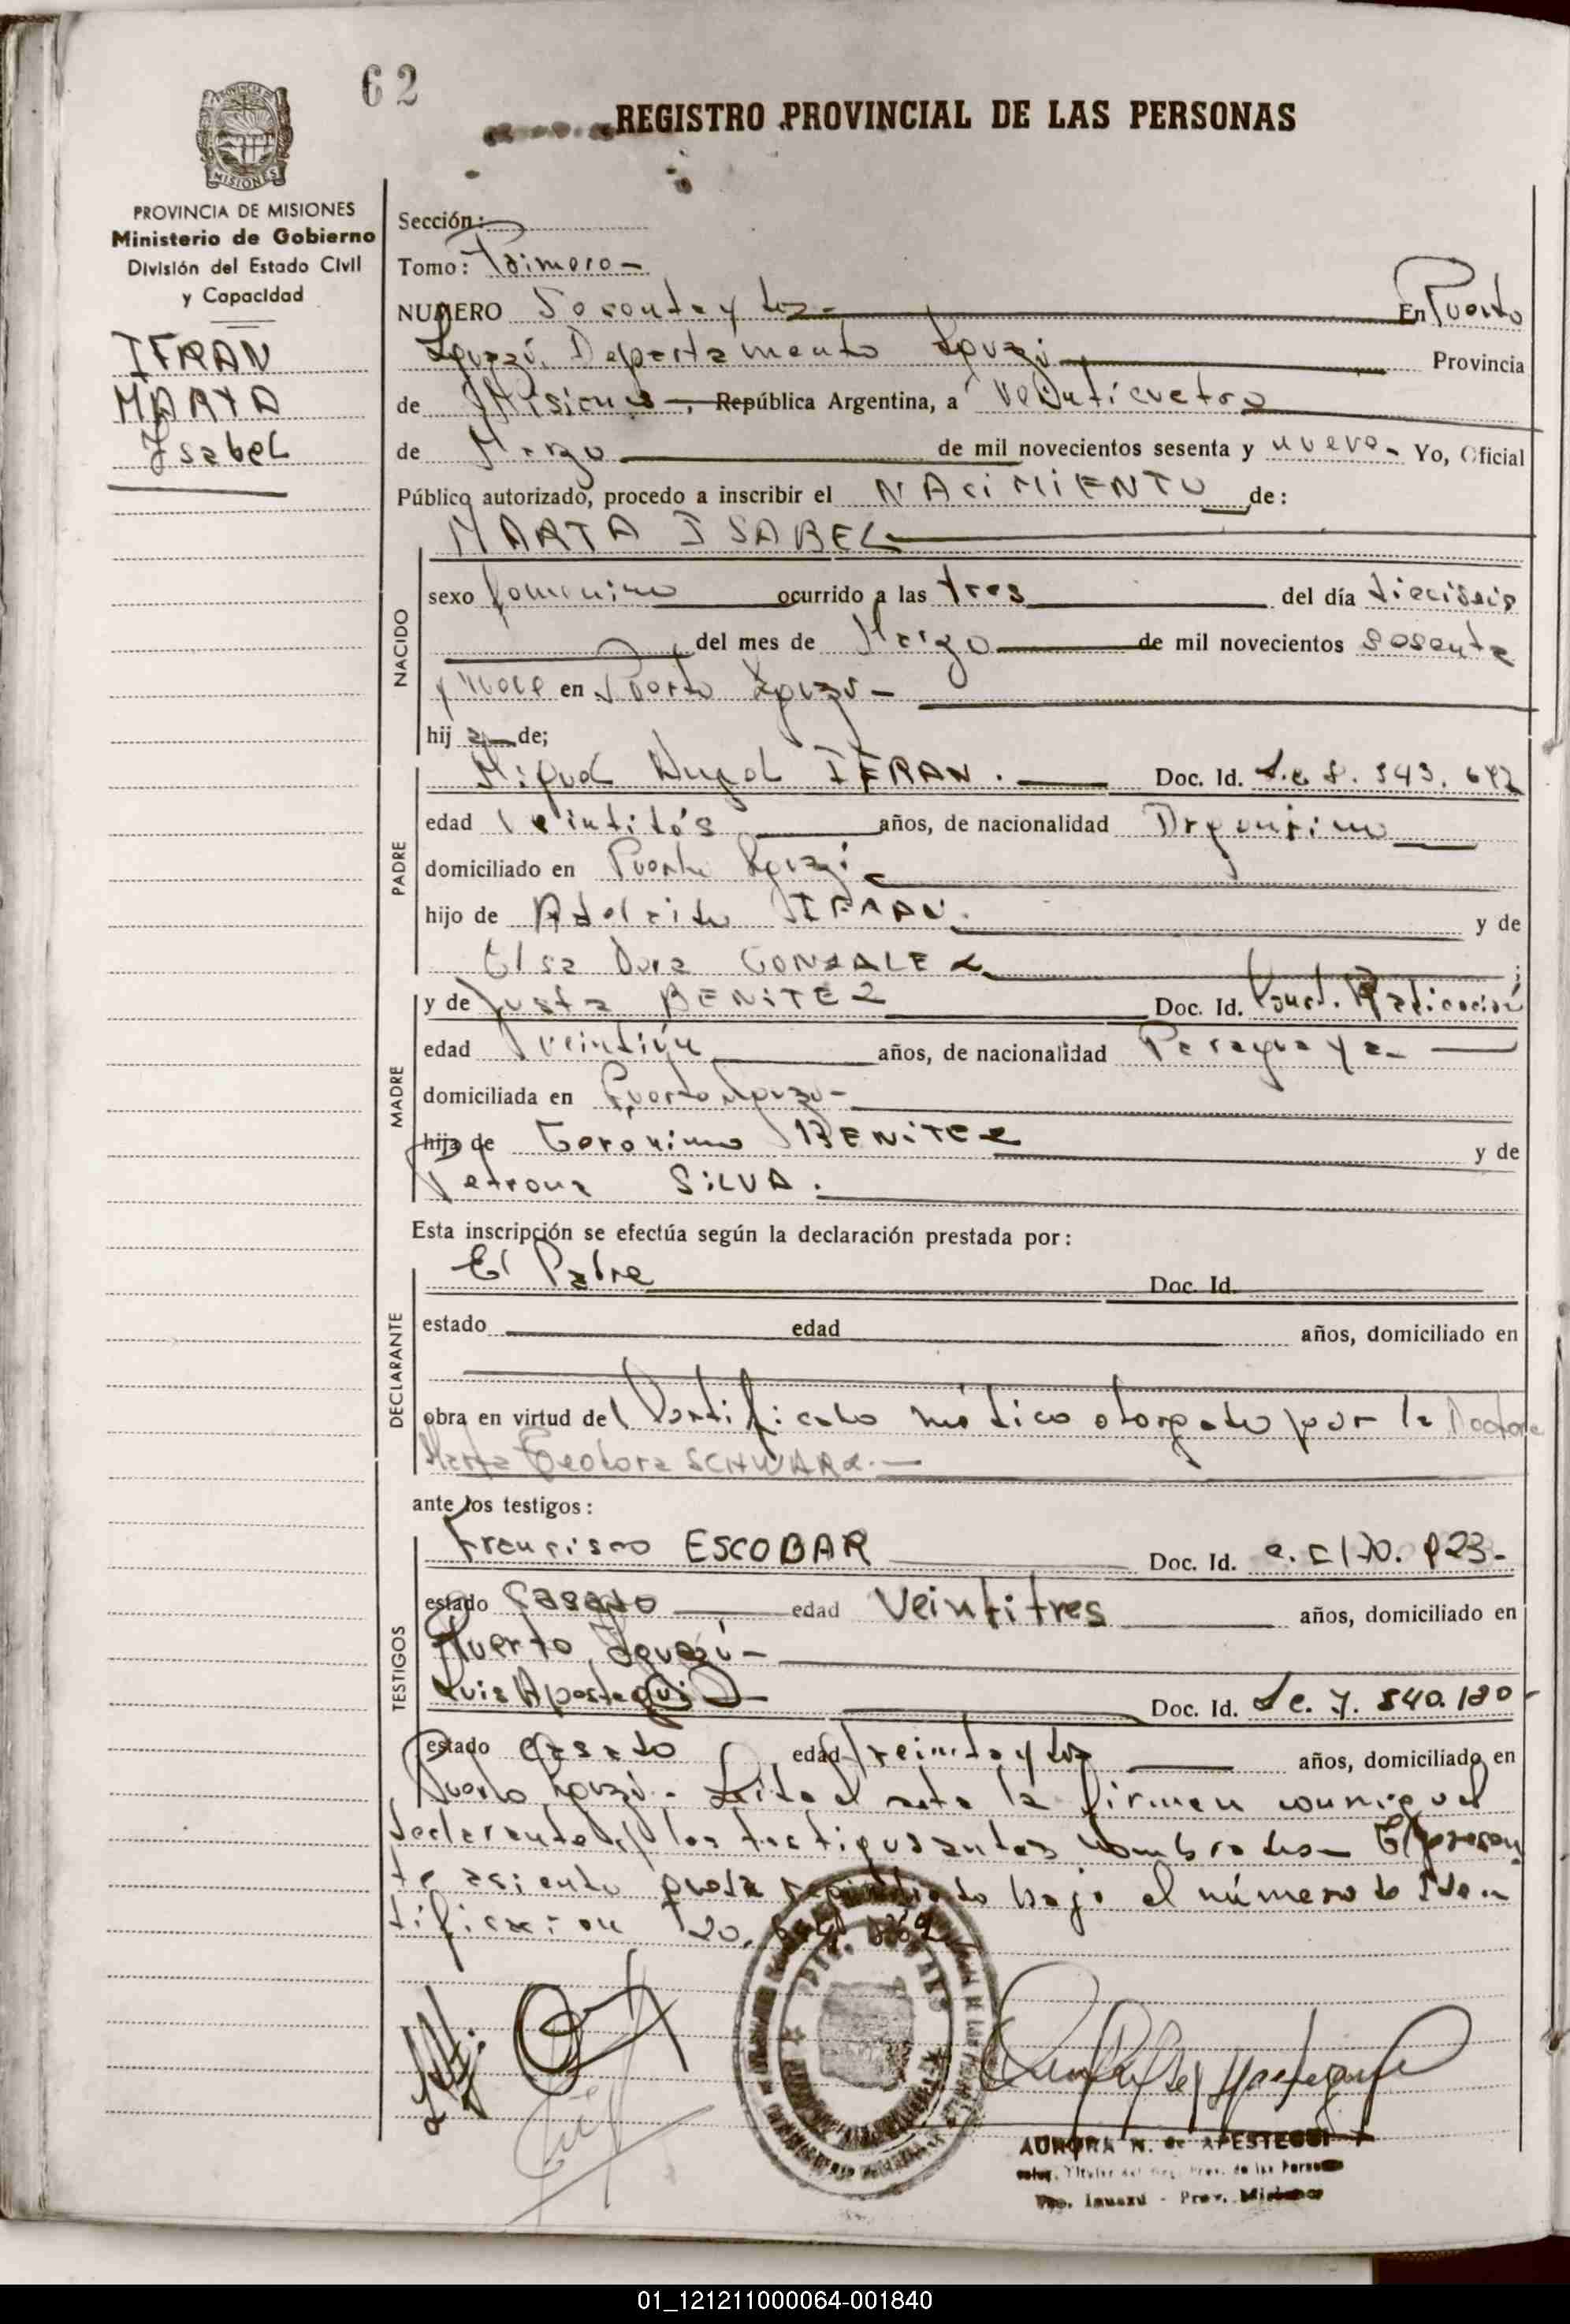 62
REGISTRO PROVINCIAL DE LAS PERSONAS
PROVINCIA DE MISIONES
Ministerio de Gobierno
División del Estado Civil
y Capacidad
IFRAN
MARTA
Isabel
Sección:
Tomo: Primero -
NUMERO Sesenta y dos - En Puerto
Iguazú, Departamento Iguazú Provincia
de Misiones -, República Argentina, a veinticuatro
de Marzo de mil novecientos sesenta y nueve - Yo, Oficial
Público autorizado, procedo a inscribir el NACIMIENTO de:
MARTA ISABEL
NACIDO
sexo femenino ocurrido a las tres del día dieciseis
del mes de Marzo de mil novecientos sesenta
y nueve en Puerto Iguazú -
hij a de;
PADRE
Miguel Angel IFRAN. Doc. Id. L.e. 8. 543. 642
edad veintidós años, de nacionalidad Argentino
domiciliado en Puerto Iguazú
hijo de Adelaido IFRAN. y de
Elsa Dora GONZALEZ ;
MADRE
y de Justa BENITEZ Doc. Id. Const. Radicación
edad veintiún años, de nacionalidad Paraguaya
domiciliada en Puerto Iguazú -
hija de Gerónimo BENITEZ y de
Petrona SILVA.
Esta inscripción se efectúa según la declaración prestada por:
DECLARANTE
El Padre Doc. Id.
estado edad años, domiciliado en
obra en virtud del Certificado médico otorgado por la Doctora
Marta Teodora SCHWARZ. -
ante los testigos:
TESTIGOS
Francisco ESCOBAR Doc. Id. 923 -
estado Casado edad Veintitres años, domiciliado en
Puerto Iguazú -
Luis Apostegui Doc. Id. Le. 7. 840. 180 -
estado casado edad treinta y dos años, domiciliado en
Puerto Iguazú - Leída el acta la firman conmigo el
declarante y los testigos antes nombrados - El presen
te asiento queda bajo el número de Iden
tificación 20.
AURORA N. de APESTEGUI
Pto. Iguazú - Prov. Misiones
01_121211000064-001840